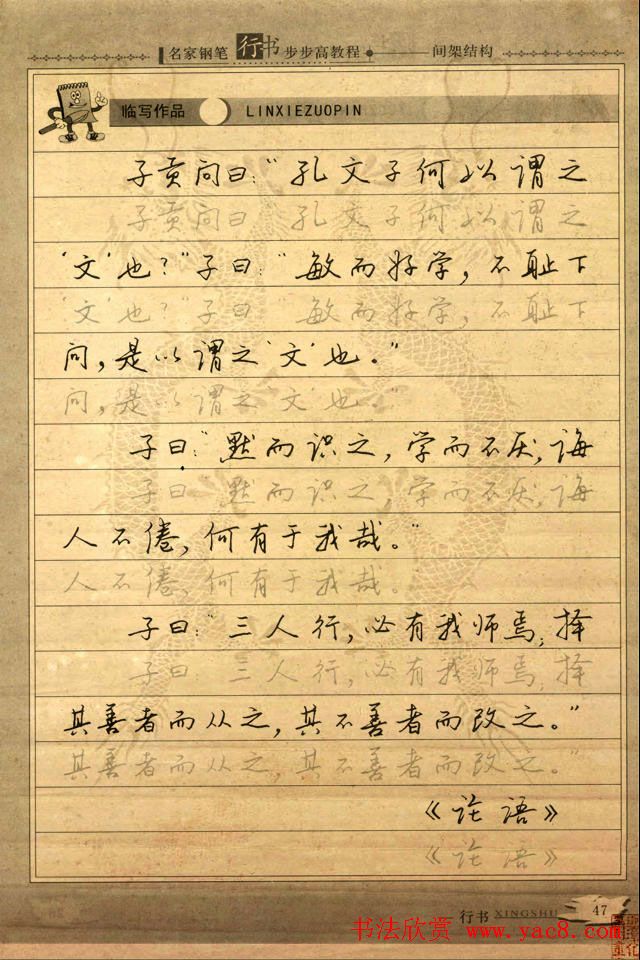 名家钢笔行书步步高教程 间架结构
临写作品 LINXIEZUOPIN
子贡问曰：“孔文子何以谓之
子贡问曰 孔文子何以谓之
‘文’也？”子曰：“敏而好学，不耻下
‘文’也？”子曰：“敏而好学，不耻下
问，是以谓之‘文’也。”
问，是以谓之‘文’也。”
子曰：“默而识之，学而不厌，诲
子曰 默而识之，学而不厌，诲
人不倦，何有于我哉。”
人不倦，何有于我哉。
子曰：“三人行，必有我师焉；择
子曰 三人行，必有我师焉；择
其善者而从之，其不善者而改之。”
其善者而从之，其不善者而改之。”
《论语》
《论语》
行书 XINGSHU 47
书法欣赏 www.yac8.com